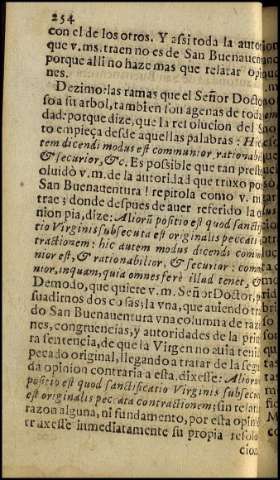 254
con el de los otros. Y assi toda la
que v. ms. traen no es de San Buenauen
porque alli no haze mas que relatar
nes.
Dezimo: las ramas que el Señor
soa su arbol, tambien son agenas de toda
dad: porque dize, que la resolucion del
to empieça desde aquellas palabras:
tem dicendi modus est communior, rationabil
& securior, &c. Es possible que tan
oluidò v. m. de la autoridad que truxo
San Buenauentura? repitola como v. m.
trae; donde despues de auer referido la
nion pia, dize: Aliorũ positio est quod
tio Virginis subsecuta est originalis peccati
tractionem: hic autem modus dicendi
nior est, & rationabilior, & securior:
nior, inquam, quia omnes ferè illud tenet, &
Demodo, que quiere v. m. Señor Doctor,
suadirnos dos cosas; la vna, que auiendo
do San Buenauentura vna columna de
nes, congruencias, y autoridades de la
ra sentencia, de que la Virgen no auia
pecado original, llegando a tratar de la
da opinion contraria a esta, dixesse:
positio est quod sanctificatio Virginis
est originalis peccata contractionem; sin
razon alguna, ni fundamento, por esta
traxesse inmediatamente su propia
cion